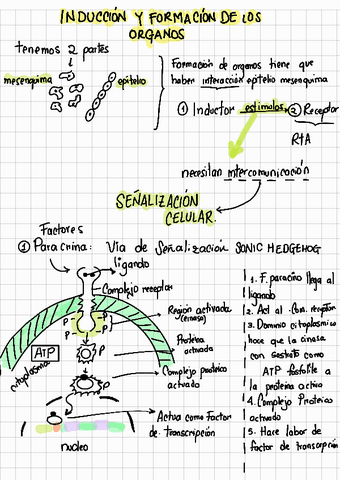 INDUCCIÓN Y FORMACIÓN DE LOS
ORGANOS
tenemos 2 partes
mesenquima
epitelio
Formación de organos tiene que
haber interacción epitelio mesenquima
① Inductor estimulos ② Receptor
RtA
necesitan intercomunicación
SEÑALIZACIÓN
CELULAR.
Factores
① Paracrina: Via de Señalización SONIC HEDGEHOG
ligando
Complejo receptor
Región activada
(cinasa)
P P
P P
Proteina
activada
P
ATP
citoplasma
Complejo proteico
activado
P
Activa como Factor
de transcripción
nucleo
1. F. paracrino llega al
ligando
2. Act al .Com. receptor
3. Dominio citoplasmico
hace que la cinasa
con
como
ATP fosforile a
la proteina activa
4. Complejo Proteico
activado
5. Hace labor de
factor de transcripción